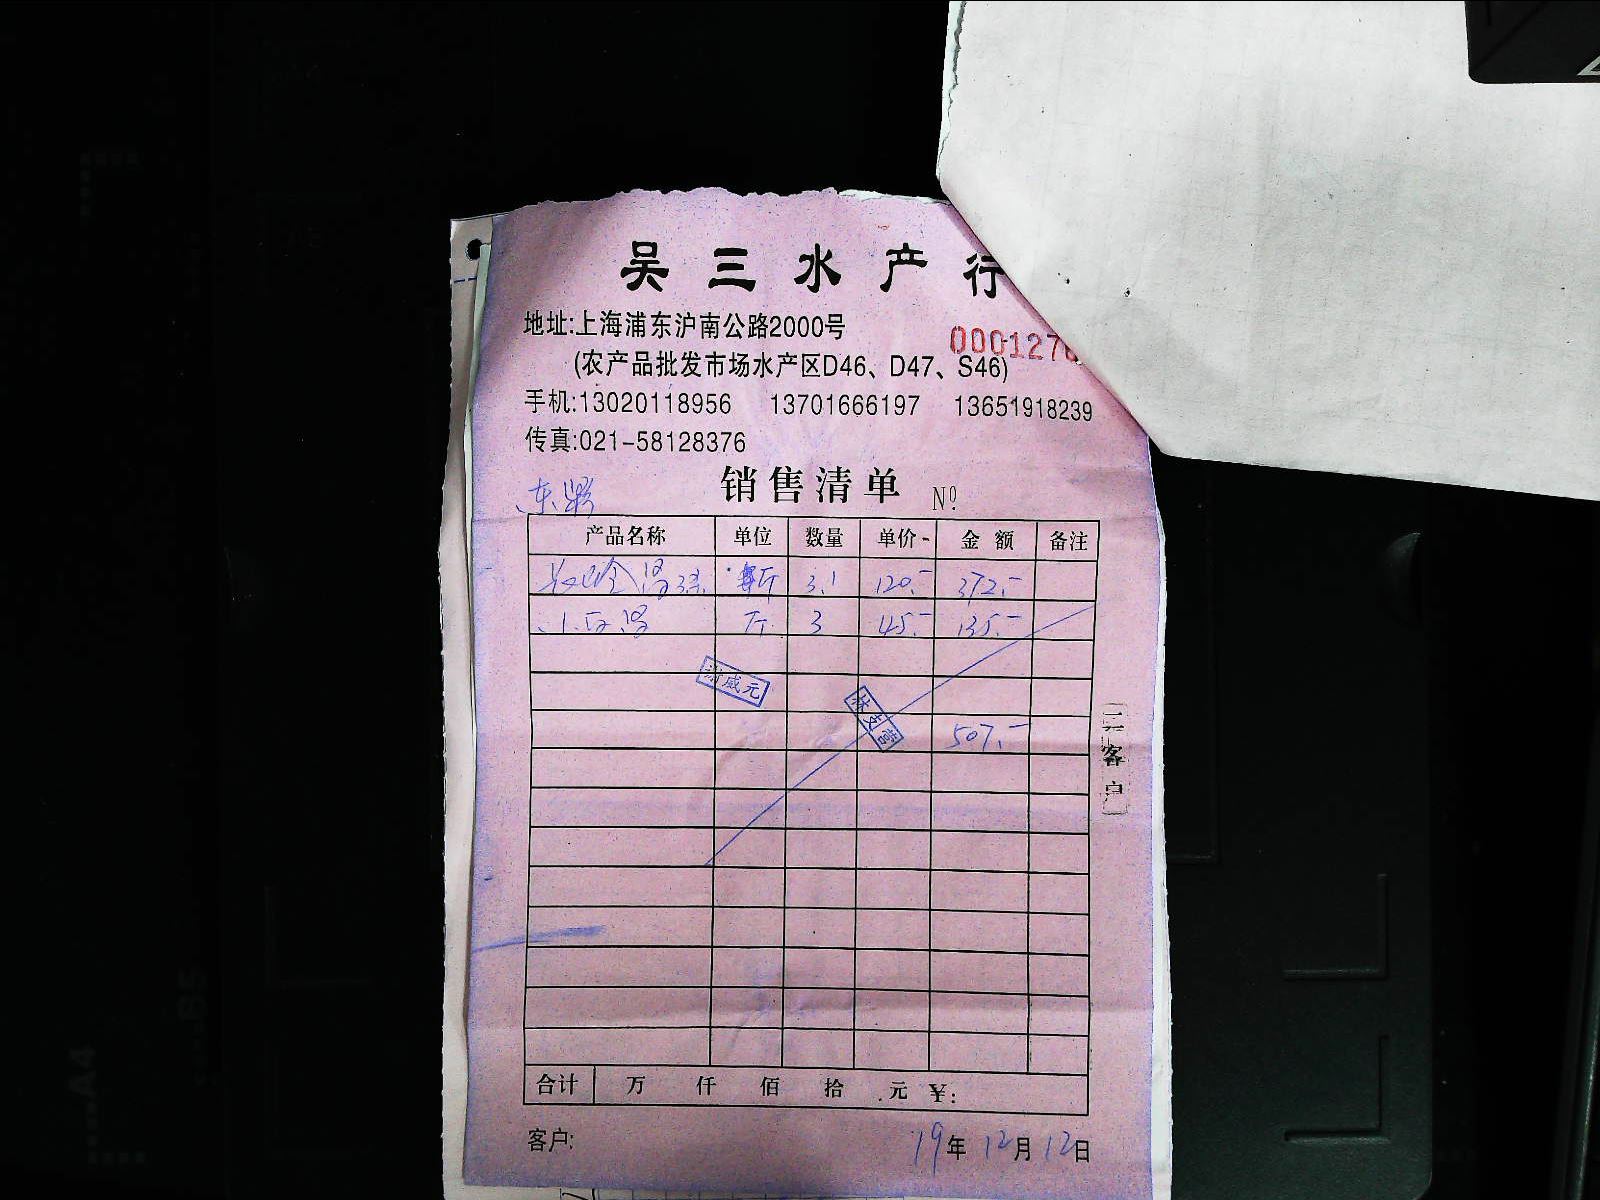 吴三水产行
地址:上海浦东沪南公路2000号
0001276
(农产品批发市场水产区D46、D47、S46)
手机:13020118956 13701666197 13651918239
传真:021-58128376
销售清单 Nº
东
产品名称 单位 数量 单价 金额 备注
斤 3.1 120.- 372.-
小白 斤 3 45.- 135.-
威元
林支营
507.-
二客户
合计 万 仟 佰 拾 元 ¥:
客户:
19年12月12日
A4
B5